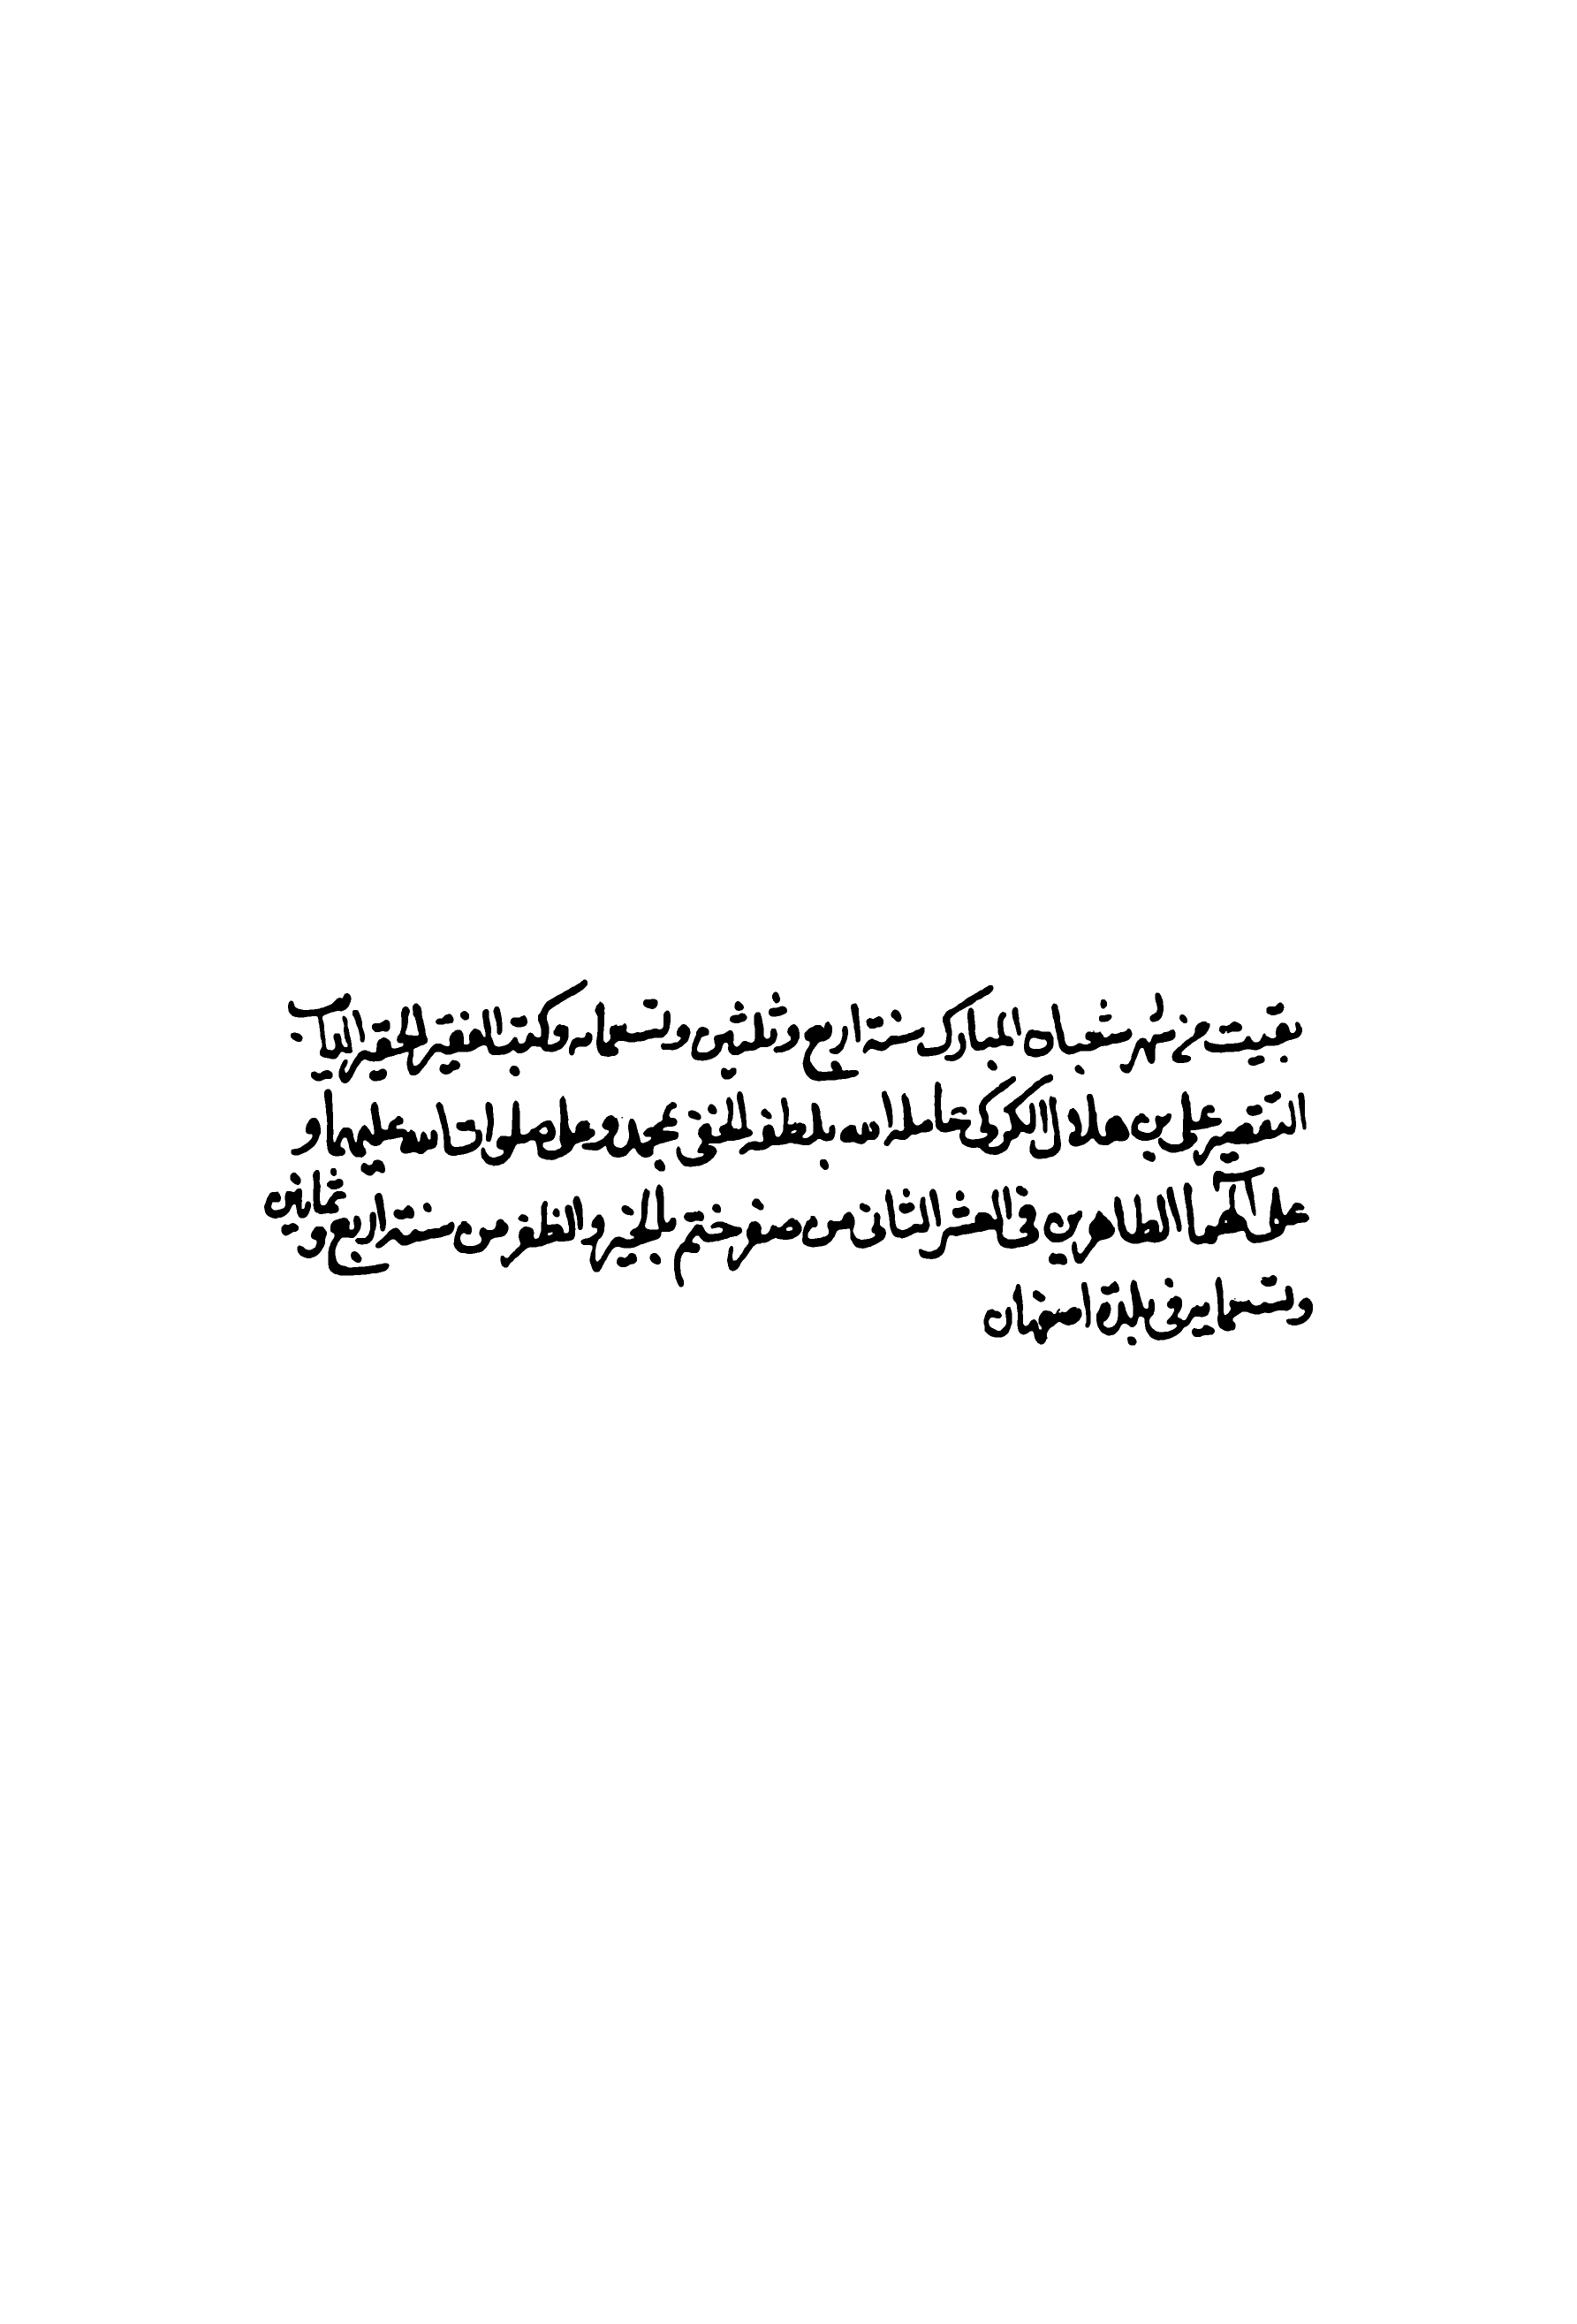 بقيت من شهر شعبان المبارك سنة اربع وثلثين وتسعمايه وكتب الفقير الحقير
التقصير علي بن هلال الكركي عامله الله بلطفه الخفي بمحمد وعلي صلوات الله عليهما و
على آلهما الطاهرين في العشر الثاني من صفر ختم بالخير والظفر من سنة اربع وثمانين
وتسعمايه في بلدة اصفهان